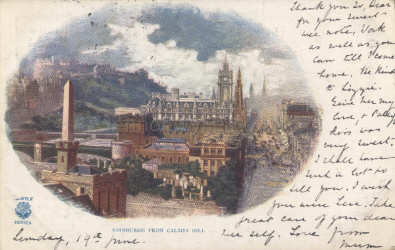 Thank you so, Dear
for your sweet
wee note, Work
as well as you
can till I come
home. Be kind
to Lizzie.
Give her my
love, & Patsy
kiss was
very sweet.
I shall have
such a lot to
tell you. I wish
you were here. Take
great care of your dear
wee self. Love from
Mum
EDINBURGH FROM CALTON HILL.
SERIES
Sunday, 19th June.